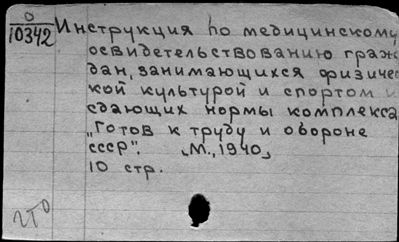 0
10342
Инструкция по медицинскому
освидетельствованию граж
дан, занимающихся физичес
кой культурой и спортом и
сдающих нормы комплекса
„Готов к труду и обороне
СССР". М., 1940,
10 стр.
ГТО